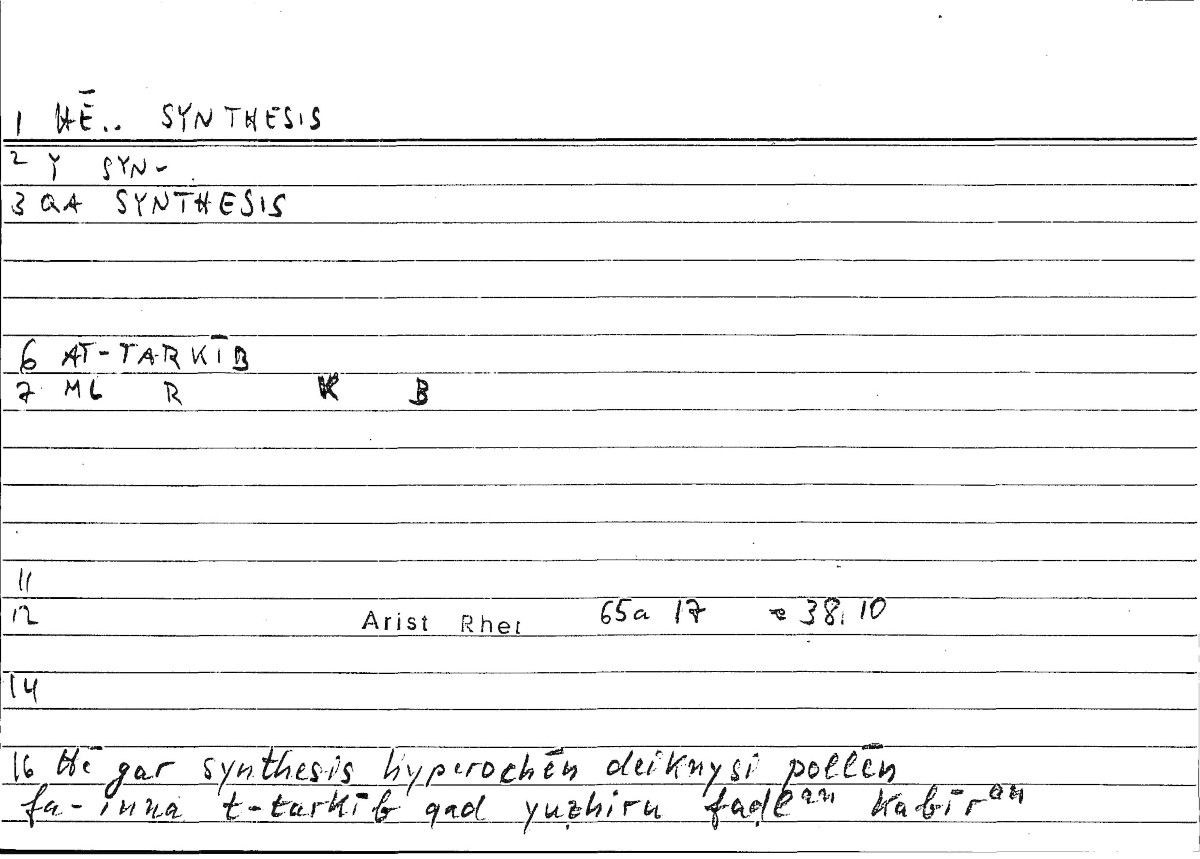 1 HĒ.. SYNTHESIS
2 Y SYN-
3 QA SYNTHESIS
6 AT-TARKĪB
7 ML R K B
11
12 Arist Rhet 65a 17 = 38,10
14
16 Hē gar synthesis hyperochēn deiknysi pollēn
fa-inna t-tarkīb qad yuẓhiru faḍlᵃⁿ kabīrᵃⁿ